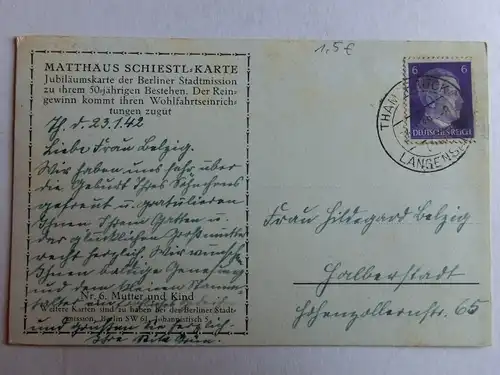 1,5€
MATTHÄUS SCHIESTL-KARTE
Jubiläumskarte der Berliner Stadtmission
zu ihrem 50jährigen Bestehen. Der Rein-
gewinn kommt ihren Wohlfahrtseinrich-
tungen zugut
Th. d. 23.1.42
Liebe Frau Belzig.
Wir haben uns sehr über
die Geburt Ihres Söhnchens
gefreut u. gratulieren
Ihnen Ihrem Gatten u.
der glücklichen Großmutter
recht herzlich. Wir wünschen
Ihnen baldige Genesung
und dem kleinen Stamm-
halter
Nr. 6. Mutter und Kind
Weitere Karten sind zu haben bei der Berliner Stadt-
mission, Berlin SW 61, Johannistisch 5
und grüßen Sie herzlich
Ihre
6 6
DEUTSCHES REICH
THAN
LANGENS
Frau Hildegard Belzig
Halberstadt
Hohenzollernstr. 65